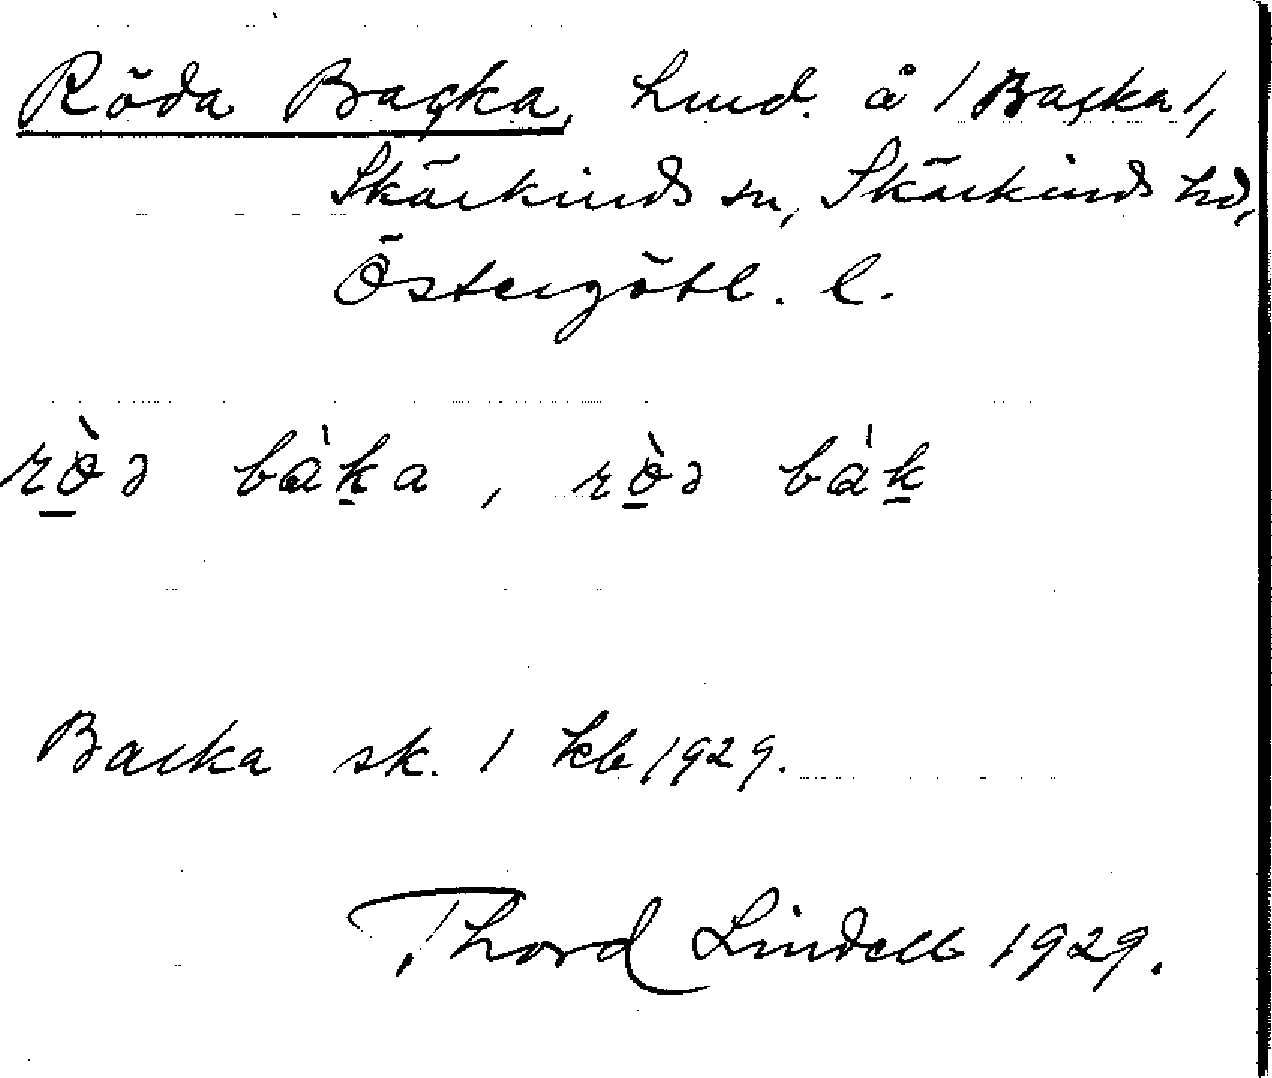 Röda Backa, hmd. å / Backa /,
Skärkinds sn, Skärkinds hd,
Östergötl. l.
rò̱ə bàḵa , rò̱ə bàḵ
Backa sk. 1 kb 1929.
Thord Lindell 1929.